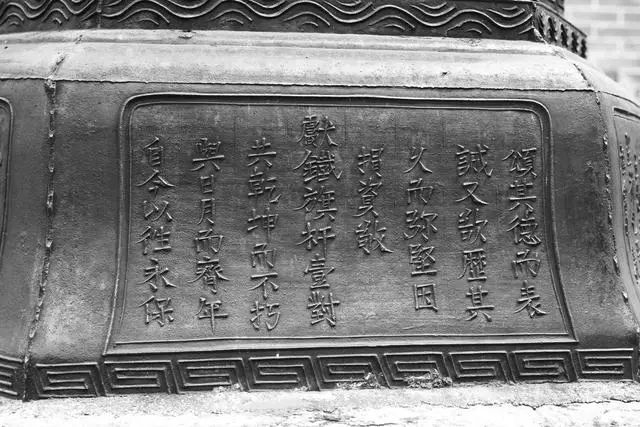 頌其德而表
誠又欲歷其
久而弥堅因
捐資敬
獻鐵旗杆壹對
共乾坤而不朽
與日月而齊年
自今以徃永保